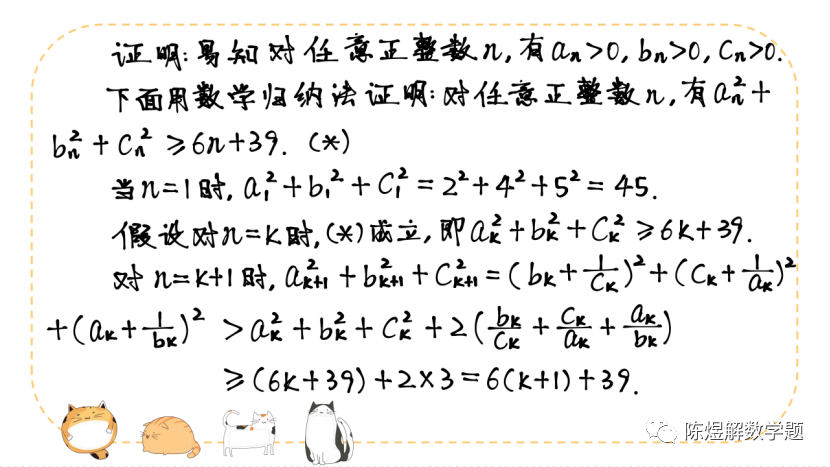 证明:易知对任意正整数n,有aₙ>0,bₙ>0,Cₙ>0.
下面用数学归纳法证明:对任意正整数n,有aₙ²+
bₙ²+Cₙ²≥6n+39.(*)
当n=1时,a₁²+b₁²+C₁²=2²+4²+5²=45.
假设对n=k时,(*)成立,即aₖ²+bₖ²+Cₖ²≥6k+39.
对n=k+1时,aₖ₊₁²+bₖ₊₁²+Cₖ₊₁²=(bₖ+1/Cₖ)²+(Cₖ+1/aₖ)²
+(aₖ+1/bₖ)²>aₖ²+bₖ²+Cₖ²+2(bₖ/Cₖ+Cₖ/aₖ+aₖ/bₖ)
≥(6k+39)+2×3=6(k+1)+39.
陈煜解数学题